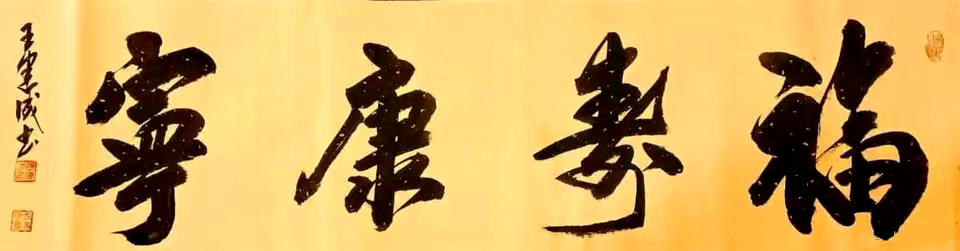 福壽康寧
王憲成书